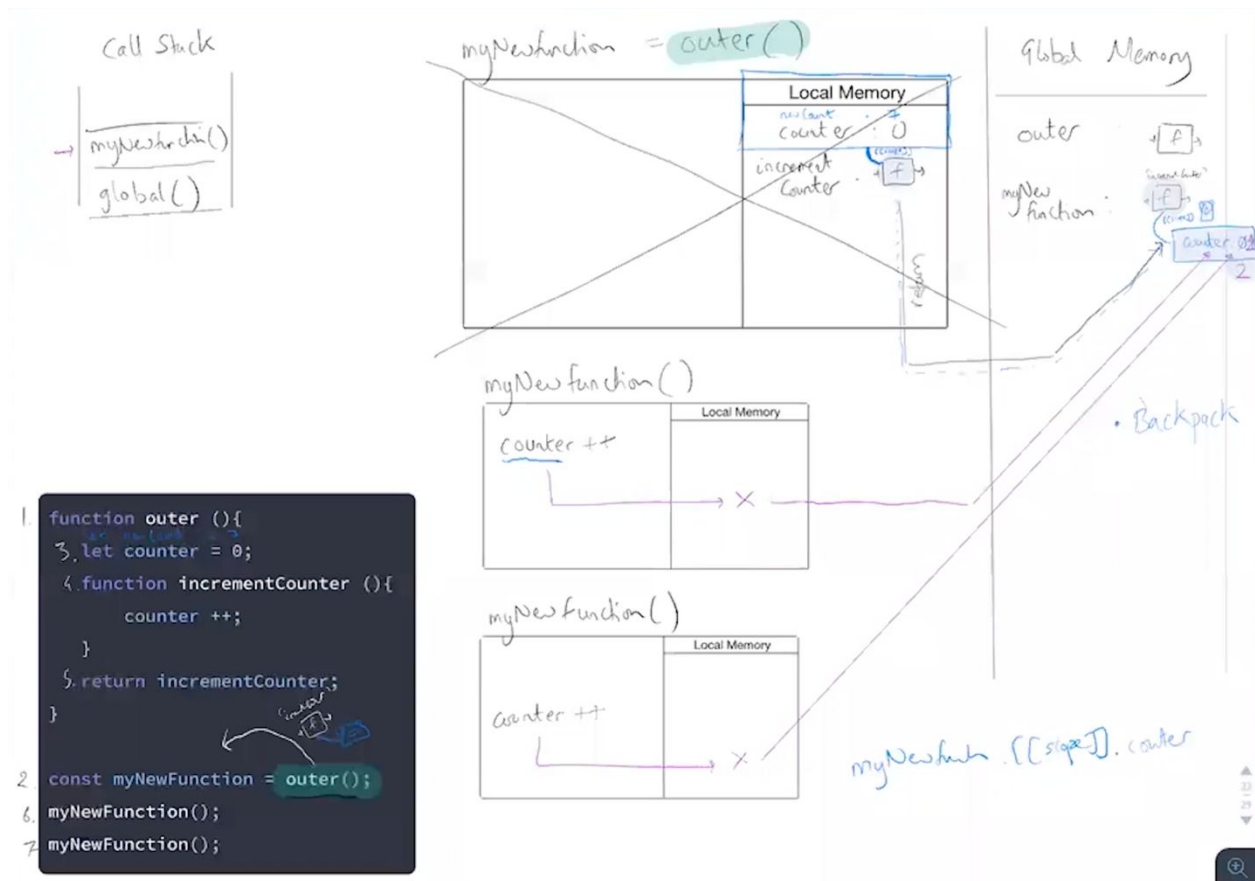 Call Stack
myNewfunction()
global()
myNewfunction = outer()
Local Memory
newCount : 7
counter : 0
increment
Counter :
f
return
Global Memory
outer
f
myNew
function :
f
counter : 0 1
2
• Backpack
myNewfunction()
Local Memory
counter ++
X
myNewfunction()
Local Memory
counter ++
X
myNewfunch . [[scope]] . counter
1. function outer (){
3. let counter = 0;
4. function incrementCounter (){
counter ++;
}
5. return incrementCounter;
}
f
2. const myNewFunction = outer();
6. myNewFunction();
7 myNewFunction();